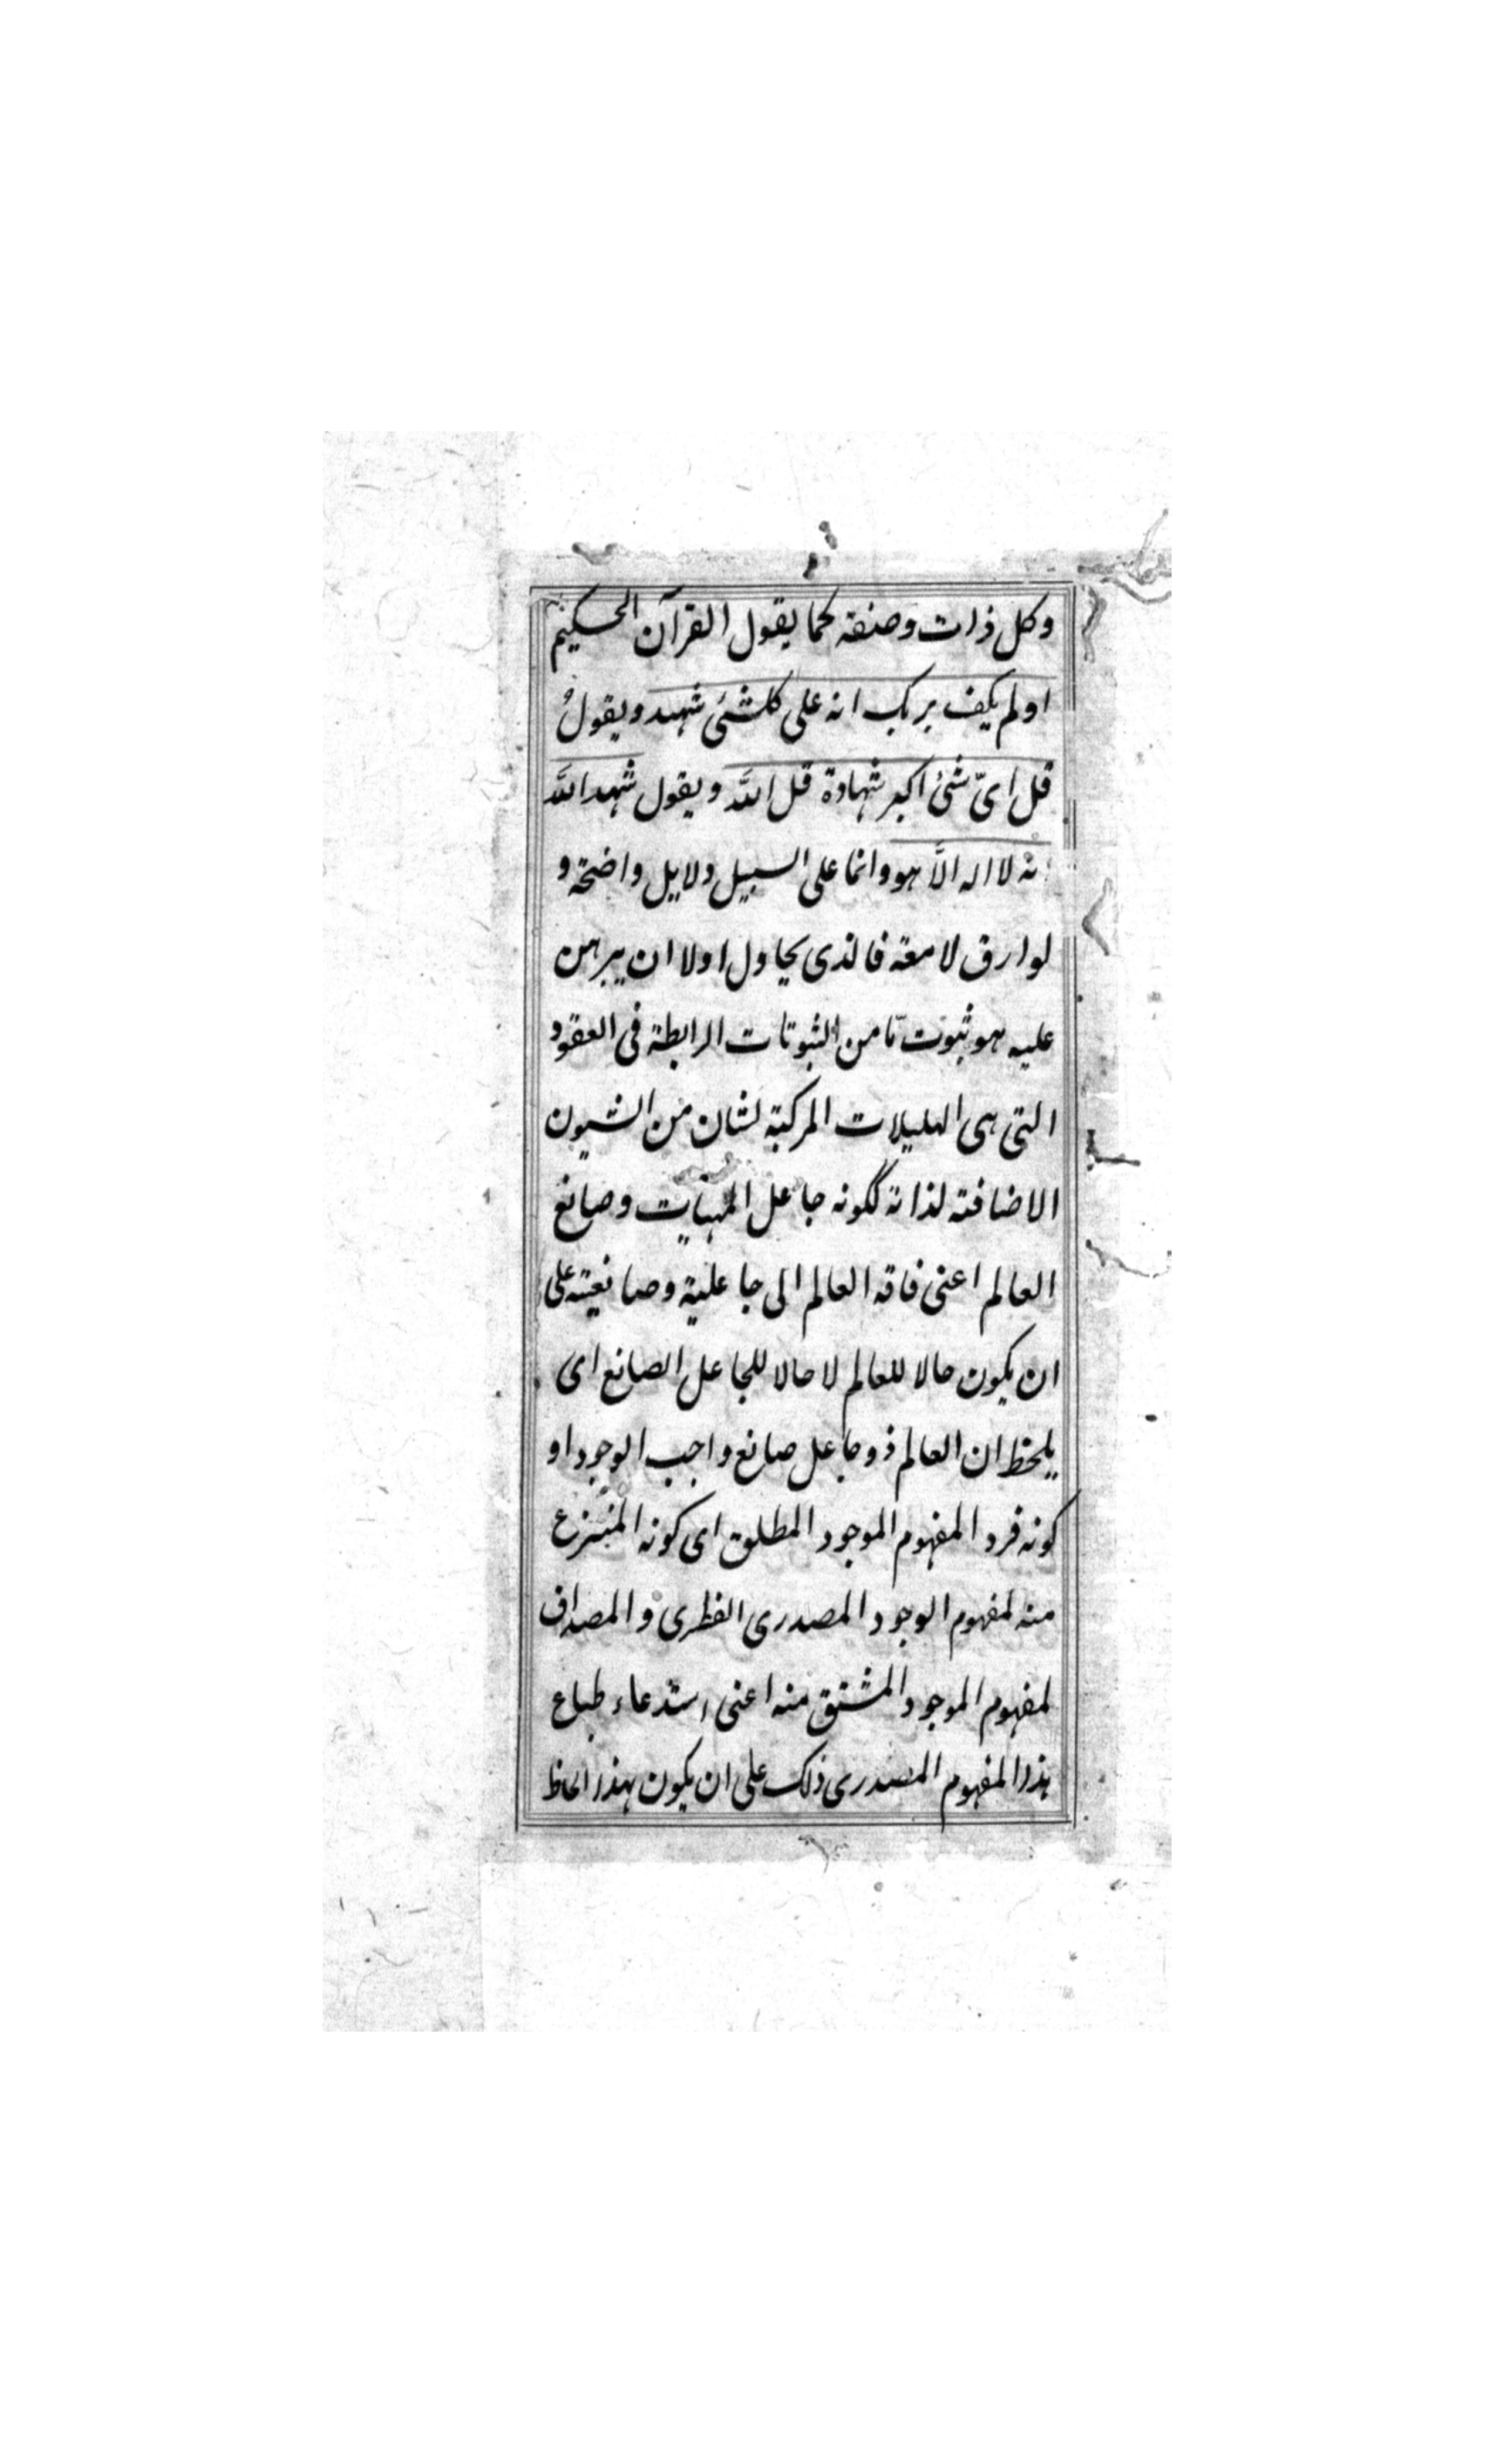 وكل ذات وصنقه كما يقول القرآن الحكيم
اولم يكف بربك انه على كلشئ شهيد ويقول
قل اىّ شئ اكبر شهادة قل اللّه ويقول شهد اللّه
انه لا اله الّا هو وانما على السبيل دلايل واضحة و
لوارق لامعة فالذى يحاول اولا ان يبرهن
عليه هو ثبوت مّا من الثبوتات الرابطة فى العقود
التى هى الهليلات المركبة لشان من الشيون
الاضافته لذاته ككونه جاعل المهيات وصانع
العالم اعنى فاقه العالم الى جاعلية وصانعيته على
ان يكون حالا للعالم لا حالا للجاعل الصانع اى
يلحظ ان العالم ذو جاعل صانع واجب الوجود او
كونه فرد المفهوم الموجود المطلق اى كونه المنتزع
منه لمفهوم الوجود المصدرى الفطرى والمصداق
لمفهوم الموجود المشتق منه اعنى استدعاء طباع
هذا المفهوم المصدرى ذلك على ان يكون هذا لحاظ